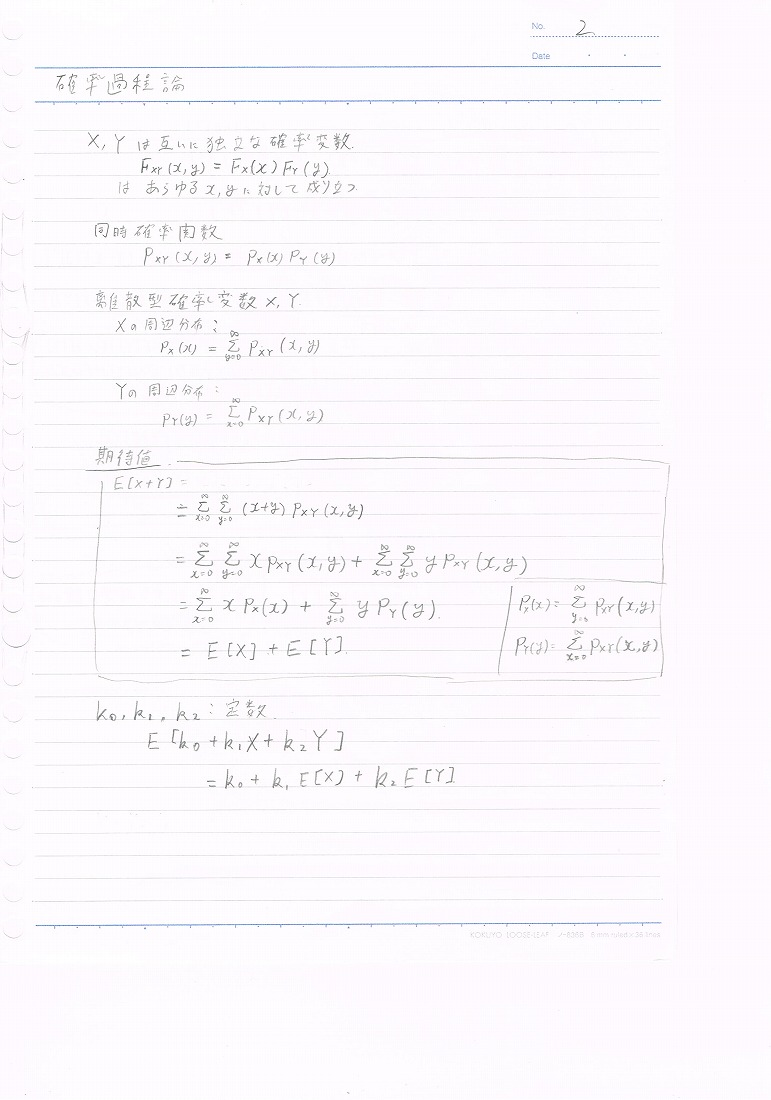 No. 2
Date
確率過程論
X, Yは互いに独立な確率変数.
F_XY(x,y) = F_X(x) F_Y(y).
は あらゆる x,y に対して成り立つ
同時確率関数
P_XY(x,y) = P_X(x) P_Y(y)
離散型確率変数 X, Y.
Xの周辺分布:
P_X(x) = Σ_{y=0}^{∞} P_XY(x,y)
Yの周辺分布:
P_Y(y) = Σ_{x=0}^{∞} P_XY(x,y)
期待値
E[X+Y] =
= Σ_{x=0}^{∞} Σ_{y=0}^{∞} (x+y) P_XY(x,y)
= Σ_{x=0}^{∞} Σ_{y=0}^{∞} x P_XY(x,y) + Σ_{x=0}^{∞} Σ_{y=0}^{∞} y P_XY(x,y)
= Σ_{x=0}^{∞} x P_X(x) + Σ_{y=0}^{∞} y P_Y(y).
= E[X] + E[Y].
P_X(x) = Σ_{y=0}^{∞} P_XY(x,y)
P_Y(y) = Σ_{x=0}^{∞} P_XY(x,y)
k₀, k₁, k₂ : 定数.
E[k₀ + k₁X + k₂Y]
= k₀ + k₁E[X] + k₂E[Y]
KOKUYO LOOSE-LEAF